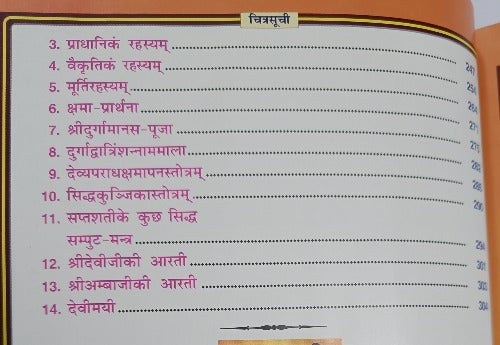 चित्रसूची
3. प्राधानिकं रहस्यम् 247
4. वैकृतिकं रहस्यम् 254
5. मूर्तिरहस्यम् 264
6. क्षमा-प्रार्थना 271
7. श्रीदुर्गामानस-पूजा
8. दुर्गाद्वात्रिंशन्नाममाला
9. देव्यपराधक्षमापनस्तोत्रम्
10. सिद्धकुञ्जिकास्तोत्रम् 290
11. सप्तशतीके कुछ सिद्ध
सम्पुट-मन्त्र 294
12. श्रीदेवीजीकी आरती 301
13. श्रीअम्बाजीकी आरती 303
14. देवीमयी 304